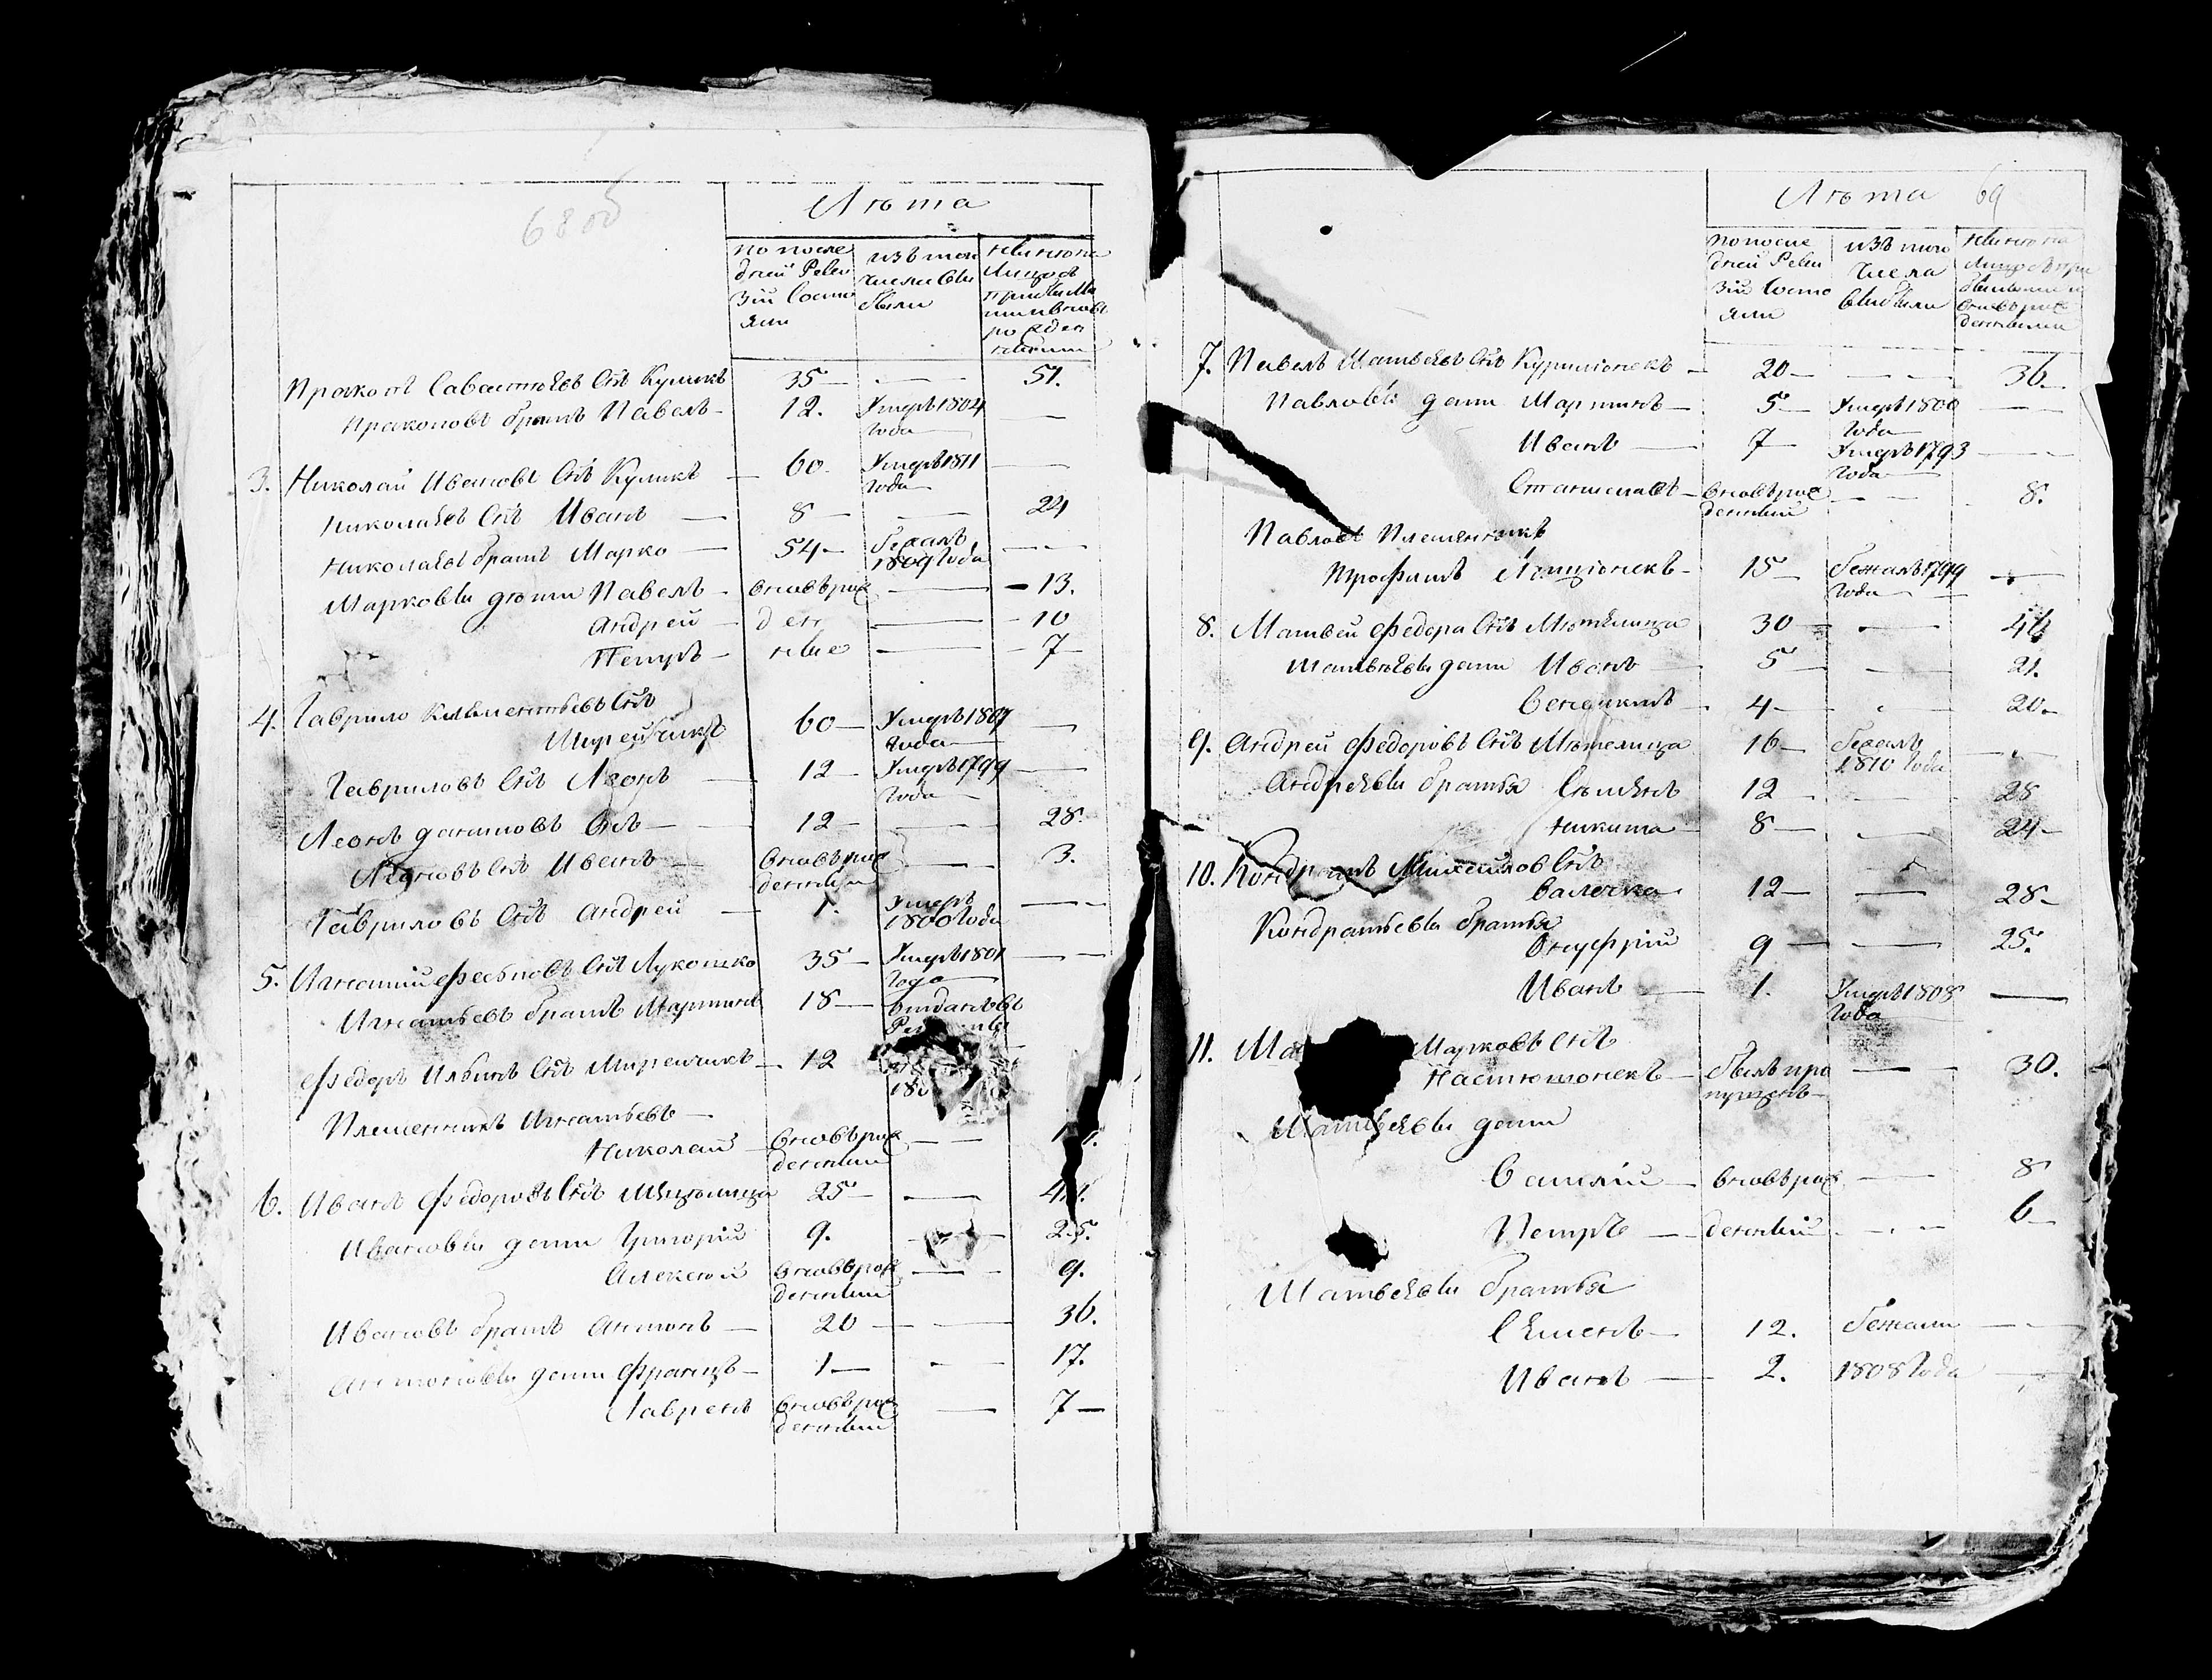 68 об
Лѣта
по после
дней Реви
зіи состо
яли
изъ того
числа вы
были
ныне на
лицо съ
прибылы
ми и вновь
рожден
ными
Прокопъ Савастѣевъ Сынъ Куликъ 35 — — 51.
Прокоповъ братъ Павелъ — 12. Умеръ 1804
года —
3. Николай Ивановъ Сынъ Куликъ — 60. Умеръ 1811
года —
Николаевъ Сынъ Иванъ — 8 — — 24
Николаевъ братъ Марко — 54 — бежалъ
1809 года — —
Марковы дѣти Павелъ — вновѣрож — — 13.
Андрей — ден — — 10
Петръ — ные — — 7 —
4. Гаврило Климентьевъ Сынъ
Мирейчикъ 60 — Умеръ 1807
года — —
Гавриловъ Сынъ Леонъ — 12 — Умеръ 1799
года — —
Леонъ даниловъ Сынъ — 12 — — 28.
Леоновъ Сынъ Иванъ — вновѣрож
денный — 3.
Гавриловъ Сынъ Андрей — 1. умеръ
1800 года — —
5. Игнатій Сынъ Лукошко 35 — Умеръ 1801
года — —
Игнатьевъ братъ Мартинъ 18 — отданъ въ
Федоръ Ильинъ Сынъ Мирейчикъ — 12
18
Племенникъ Игнатьевъ —
Николай — вновѣрож
денный — —
6. Иванъ Федоровъ Сынъ 25 — —
Ивановы дети Григорій 9. — 25.
Алексей вновѣрож
денный — 9.
Ивановъ братъ Антонъ — 20 — — 36.
Антоновы дети Францъ — 1 — — 17.
Лавренъ вновѣрож
денный — 7 —
Лѣта 69
по после
дней Реви
зіи Состо
яли
изъ того
числа
выбыли
ныне на
лицо съ при
былыми и
вновь рож
денными
7. Павелъ Матвеевъ Сынъ — 20 — — — 36 —
Павловы дети Мартинъ — 5 — Умеръ 1800
года — — —
Иванъ — 7 — Умеръ 1793
года — — —
Станиславъ — вновѣрож
денный — — 8.
Павловъ Племенникъ
Трофимъ — 15 — бежалъ 1799
года — —
8. Матвей Федора Сынъ Мютелица 30 — —
Матвѣевы дети Иванъ — 5 — — 21.
Бенедиктъ — 4 — — 20 —
9. Андрей Федоровъ Сынъ Мютелица 16 — бежалъ
1810 года —
Андреевы братья Семенъ 12 — — 28
Никита — 8 — — 24 —
10. Кондратъ Михайлов Сынъ
Валочко 12 — — 28 —
Кондратьевы братья
Онуфрій 9 — — 25.
Иванъ — 1. Умеръ 1805
года —
11. Ма Марковъ Сынъ
Настюшонекъ — былъ про
пущенъ — — 30.
Матвеевы дети
Василій — вновѣрож — 8
Петръ — денный — — 6 —
Матвеевы братья
Семенъ — 12. бежали — —
Иванъ — 2. 1808 года —